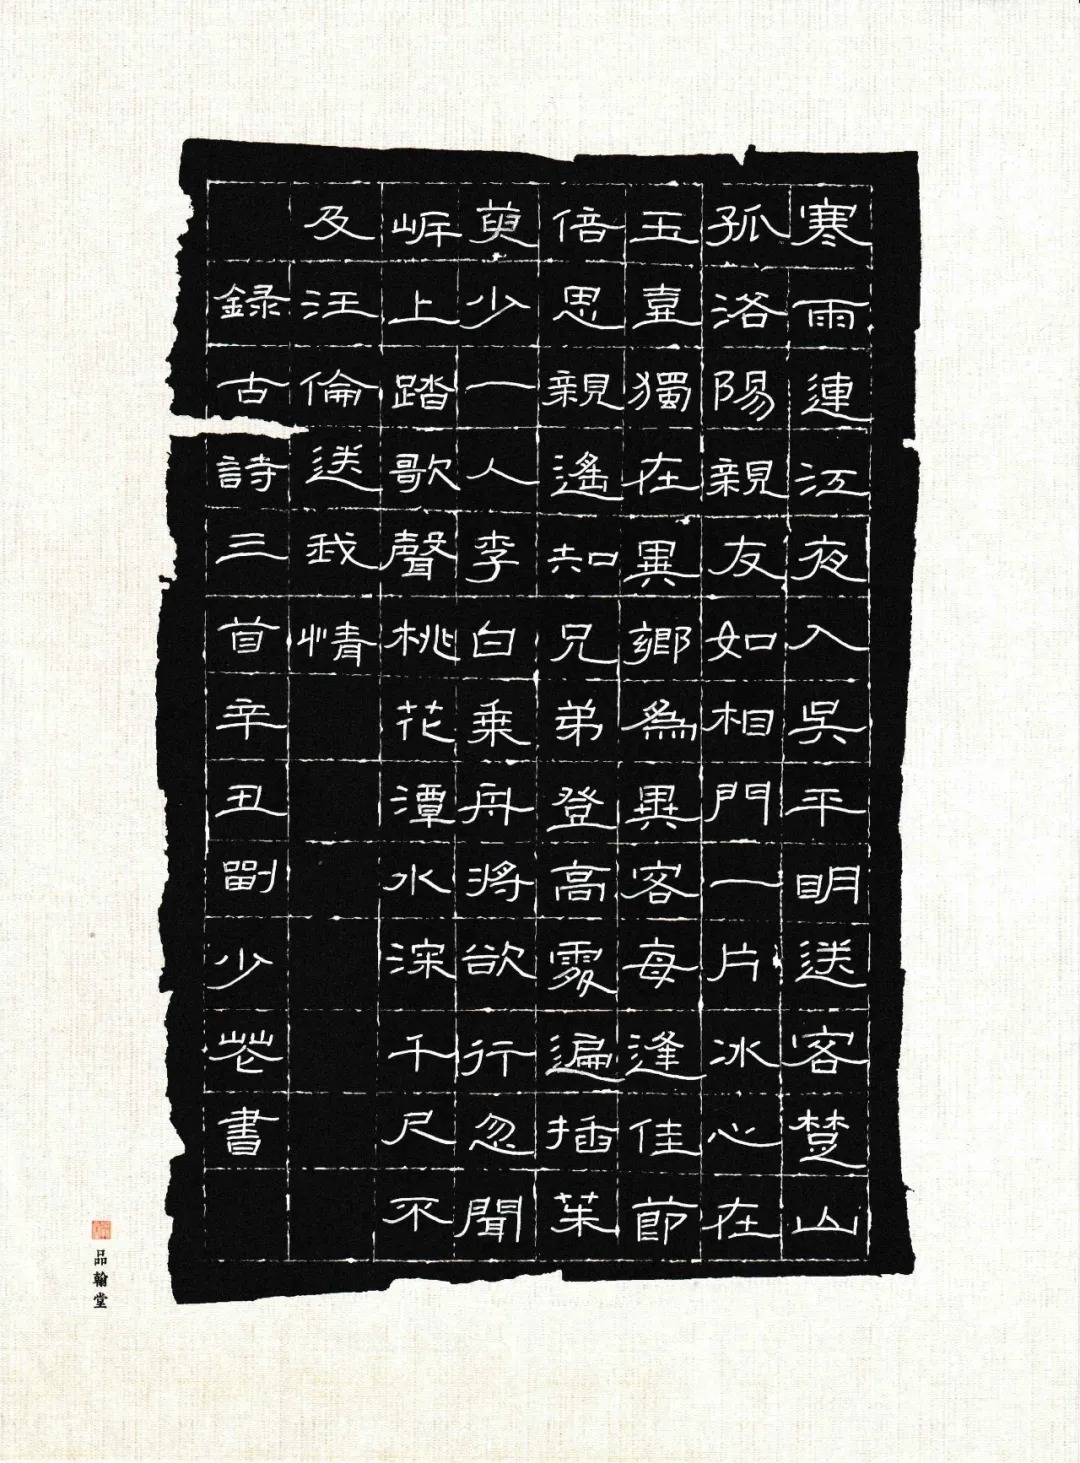 寒雨連江夜入吳平明送客楚山
孤洛陽親友如相門一片冰心在
玉壺獨在異鄉為異客每逢佳節
倍思親遙知兄弟登高處遍插茱
萸少一人李白乘舟將欲行忽聞
岍上踏歌聲桃花潭水深千尺不
及汪倫送我情
錄古詩三首辛丑劉少英書
品翰堂